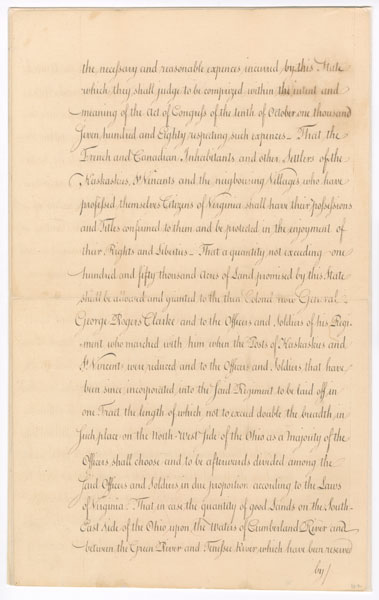 the necessary and reasonable expences incurred by this State
which they shall judge to be comprized within the intent and
meaning of the Act of Congress of the tenth of October one thousand
seven hundred and Eighty respecting such expences_ That the
French and Canadian Inhabitants and other Settlers of the
Kaskaskies, St Vincents and the neigbouring Villages who have
professed themselves Citizens of Virginia shall have their possessions
and Titles confirmed to them and be protected in the enjoyment of
their Rights and Liberties_ That a quantity not exceeding one
hundred and fifty thousand Acres of Land promised by this State
shall be allowed and granted to the then Colonel now General
George Rogers Clarke and to the Officers and Soldiers of his Regi-
ment who marched with him when the Posts of Kaskaskies and
St Vincents were reduced and to the Officers and Soldiers that have
been since incorporated into the said Regiment to be laid off in
one Tract the length of which not to exceed double the breadth in
such place on the North West side of the Ohio as a Majority of the
Officers shall choose and to be afterwards divided among the
said Officers and Soldiers in due proportion according to the Laws
of Virginia_ That in case the quantity of good Lands on the South-
East side of the Ohio upon the Waters of Cumberland River and
between the Green River and Tenessee River which have been reserved
by/